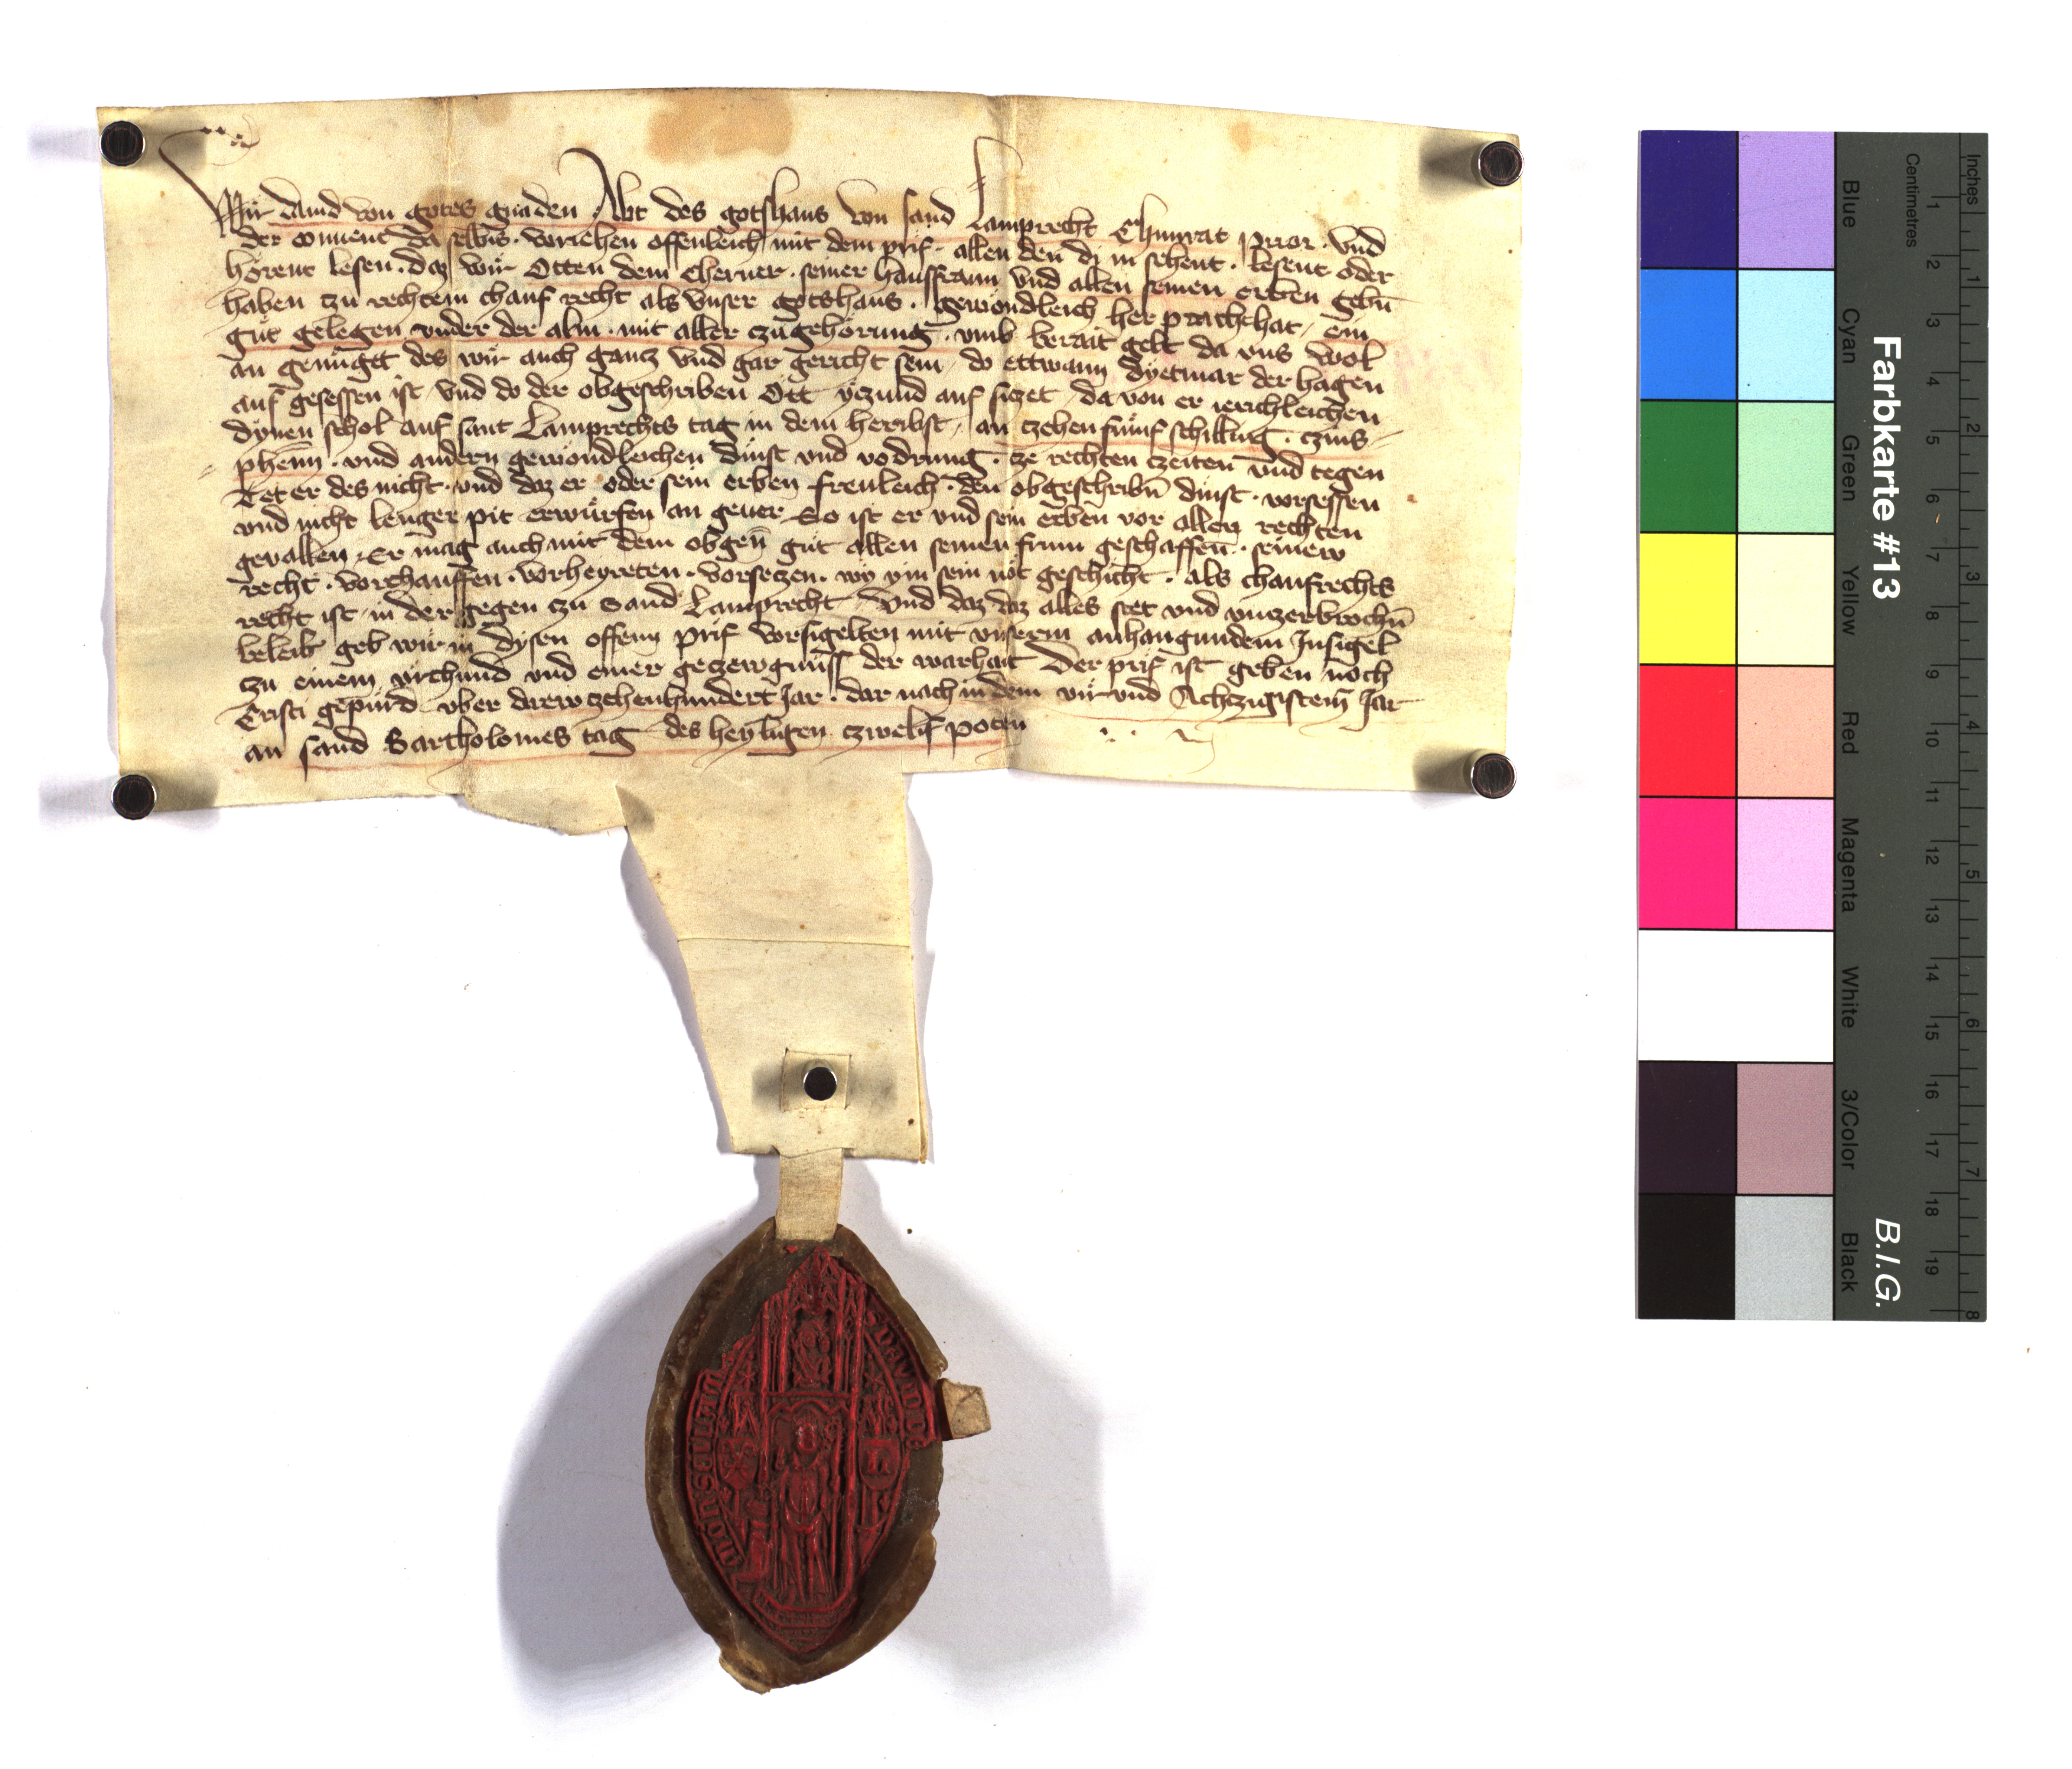 Wir dauid von gotes gnaden Abt des gotshaus von sand Lamprecht Chunrat prior · vnd
der conuent da selbns · voriehen offenleich mit dem prif · allen den di in sehent · lesent oder
hörent lesen · daz wir Otten dem Cherner · seiner hausfraun vnd allen seinen erben gebn̄
haben czu rechtem chauf recht als vnser gotshaus · gewondleich her prachchat / ein
güt gelegen vnder der alm · mit aller czugehörung · vmb berait gelt da vns wol
an genügett des wir auch gancz vnd gar gericht sein / do ettwann dyetmar der hagen
auf gesessen ist / vnd do der obgeschriben Ott yczund auf siczet / da von er ierichleichen
dynen schol auf sant Lamprechts tag in dem herbst / an czehen fümf schilling · czins
phenn̄ · vnd andern gewondleichen dinst vnd vodrung · cze rechten czeiten vnd tegen
Tet er des nicht · vnd daz er oder sein erben freuleich · den obgeschribn̄ dinst · vorsessen
vnd nicht lenger pit erwürfen an geuer So ist er vnd sein erben vor allen rechten
geuallen / Er mag auch mit dem obgen̄ güt allen seinen frum geschaffen̄ · seinew
recht · vorchauffen · vorheyreten · vorseczen · wy ym sein not geschicht · als chaufrechts
recht ist / in der gegen czu Sand Lamprecht / Vnd daz daz alles stet vnd vnczerbrochn̄
beleib geb wir in dysen offenn prif vorsigelten mit vnserm anhangundem Insigel
czu einem vrchund vnd einer geczewgnüss der warhait Der prif ist geben noch
Cristi gepurd vber drewczehenhundert Jar · dar nach in dem vir vnd Achczigistem̄ Jar
an sand Bartholomes tag des heyligen czwelf poten
Inches
Centimetres
1 2 3 4 5 6 7 8 9 10 11 12 13 14 15 16 17 18 19
1 2 3 4 5 6 7 8
Farbkarte #13
B.I.G.
Blue
Cyan
Green
Yellow
Red
Magenta
White
3/Color
Black